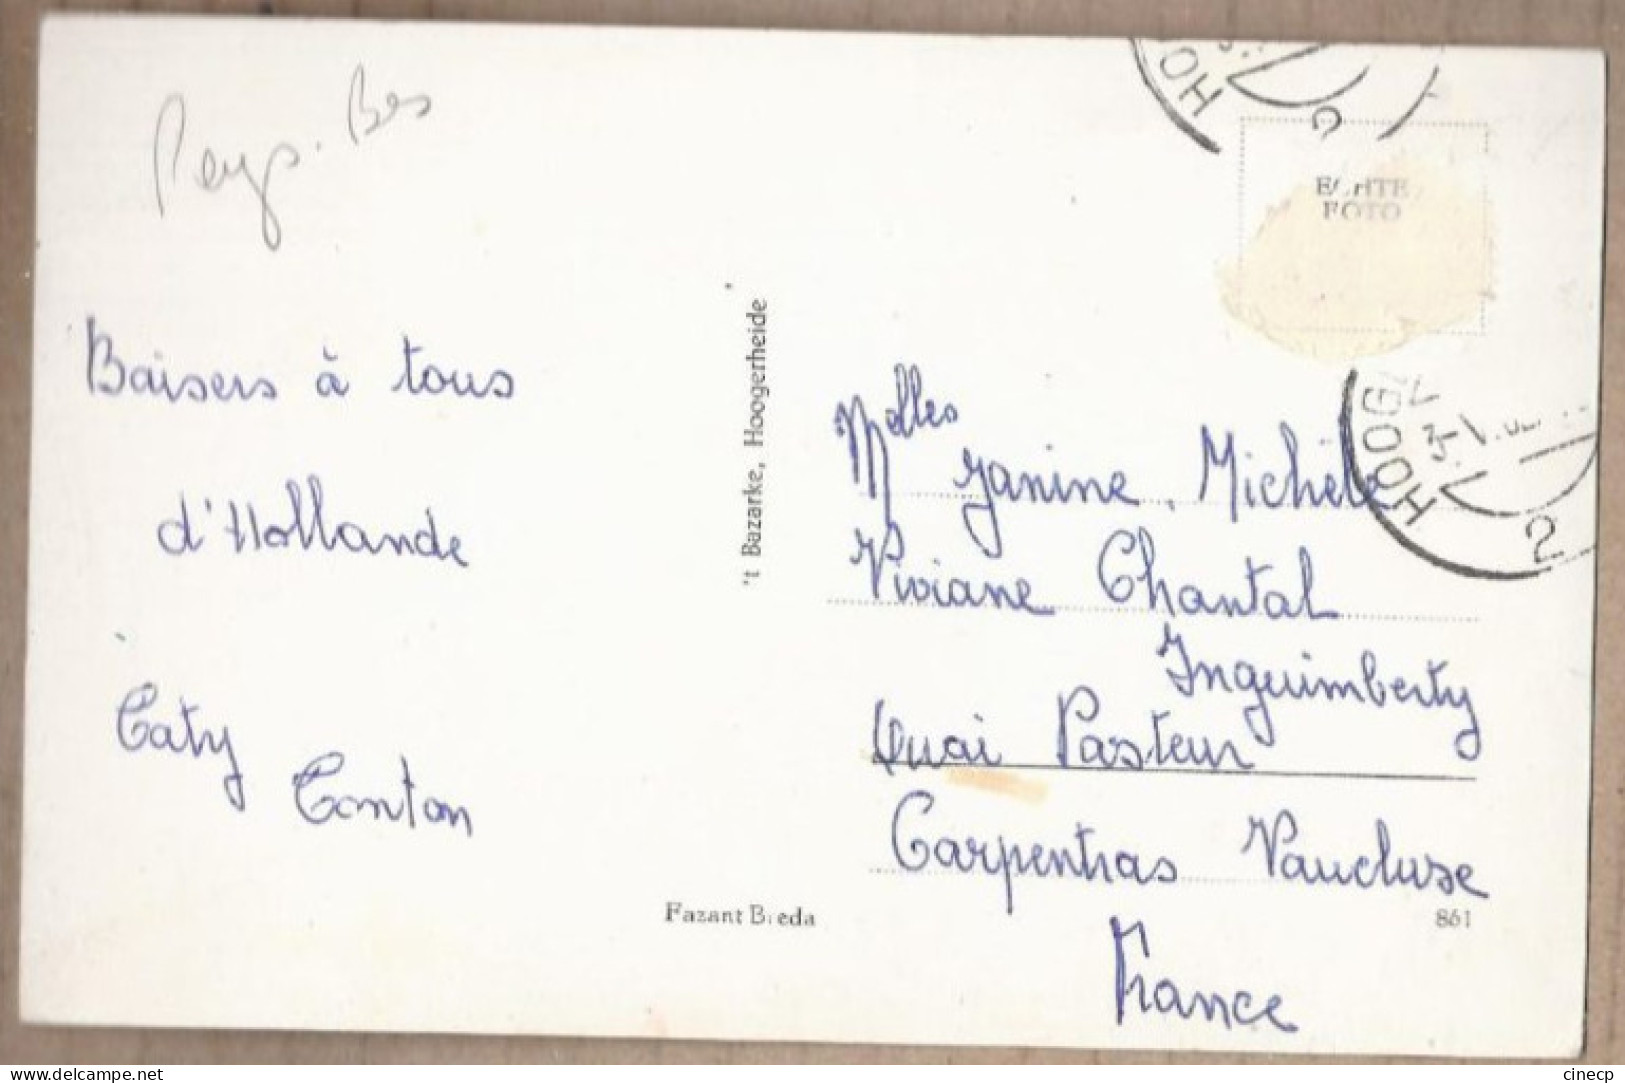 Pays. Bas
Baisers à tous
d'Hollande
Caty
Tonton
't Bazarke, Hoogerheide
Fazant Breda
ECHTE
FOTO
Melles Janine, Michèle
Viviane Chantal
Inguimberty
Quai Pasteur
Carpentras Vaucluse
861
France
HOOG
www.delcampe.net
cinecp